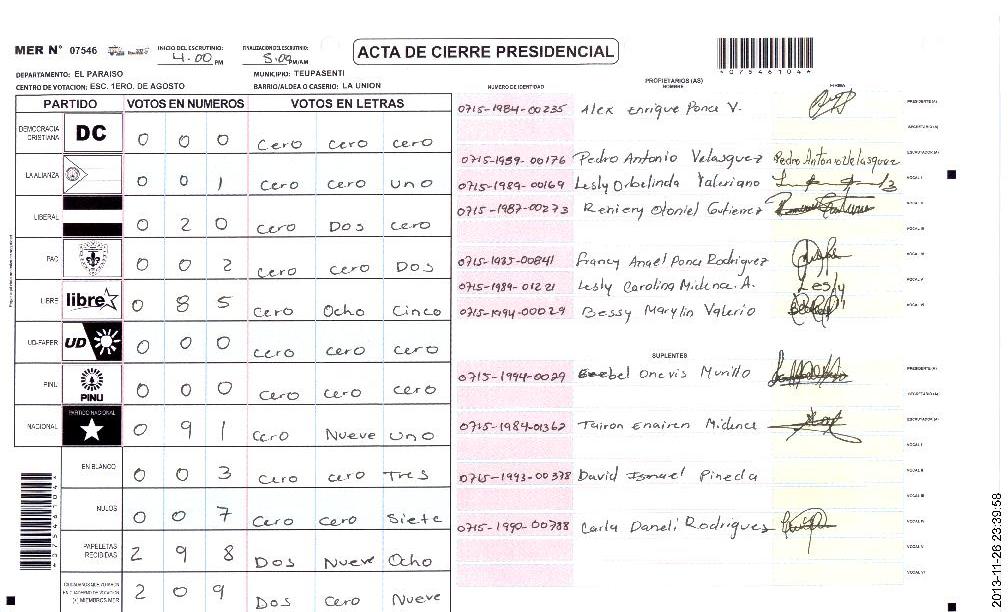 MER N° 07546 INICIO DEL ESCRUTINIO: 4.00 PM FINALIZACION DEL ESCRUTINIO: 5.00 PM/AM ACTA DE CIERRE PRESIDENCIAL
DEPARTAMENTO: EL PARAISO MUNICIPIO: TEUPASENTI
CENTRO DE VOTACION: ESC. 1ERO. DE AGOSTO BARRIO/ALDEA O CASERIO: LA UNION
PARTIDO VOTOS EN NUMEROS VOTOS EN LETRAS
DEMOCRACIA CRISTIANA DC 0 0 0 Cero cero cero
LA ALIANZA 0 0 1 Cero Cero Uno
LIBERAL 0 2 0 Cero Dos cero
PAC 0 0 2 Cero cero Dos
LIBRE libre 0 8 5 Cero Ocho Cinco
UD-FAPER UD 0 0 0 Cero cero cero
PINU PINU 0 0 0 Cero cero cero
NACIONAL PARTIDO NACIONAL 0 9 1 Cero Nueve Uno
EN BLANCO 0 0 3 Cero cero Tres
NULOS 0 0 7 Cero Cero Siete
PAPELETAS RECIBIDAS 2 9 8 Dos Nueve Ocho
2 0 9 Dos Cero Nueve
NUMERO DE IDENTIDAD PROPIETARIOS (AS) NOMBRE FIRMA
0715-1984-00235 Alex Enrique Ponce V. PRESIDENTE (A)
SECRETARIO (A)
0715-1959-00176 Pedro Antonio Velasquez Pedro Antonio Velasquez ESCRUTADOR (A)
0715-1989-00169 Lesly Orbelinda Valeriano VOCAL I
0715-1987-00273 Reniery Otoniel Gutierrez VOCAL II
VOCAL III
0715-1985-00841 Francy Angel Ponce Rodriguez VOCAL IV
0715-1989-01221 Lesly Carolina Midence. A. Lesly VOCAL V
0715-1994-00029 Bessy Marylin Valerio VOCAL VI
SUPLENTES
0715-1994-0029 Onevis Murillo PRESIDENTE (A)
SECRETARIO (A)
0715-1984-01362 Tairon Enairen Midence ESCRUTADOR (A)
VOCAL I
0715-1993-00378 David Ismael Pineda VOCAL II
VOCAL III
0715-1990-00788 Carla Daneli Rodriguez VOCAL IV
VOCAL V
VOCAL VI
2013-11-26 23:39:58